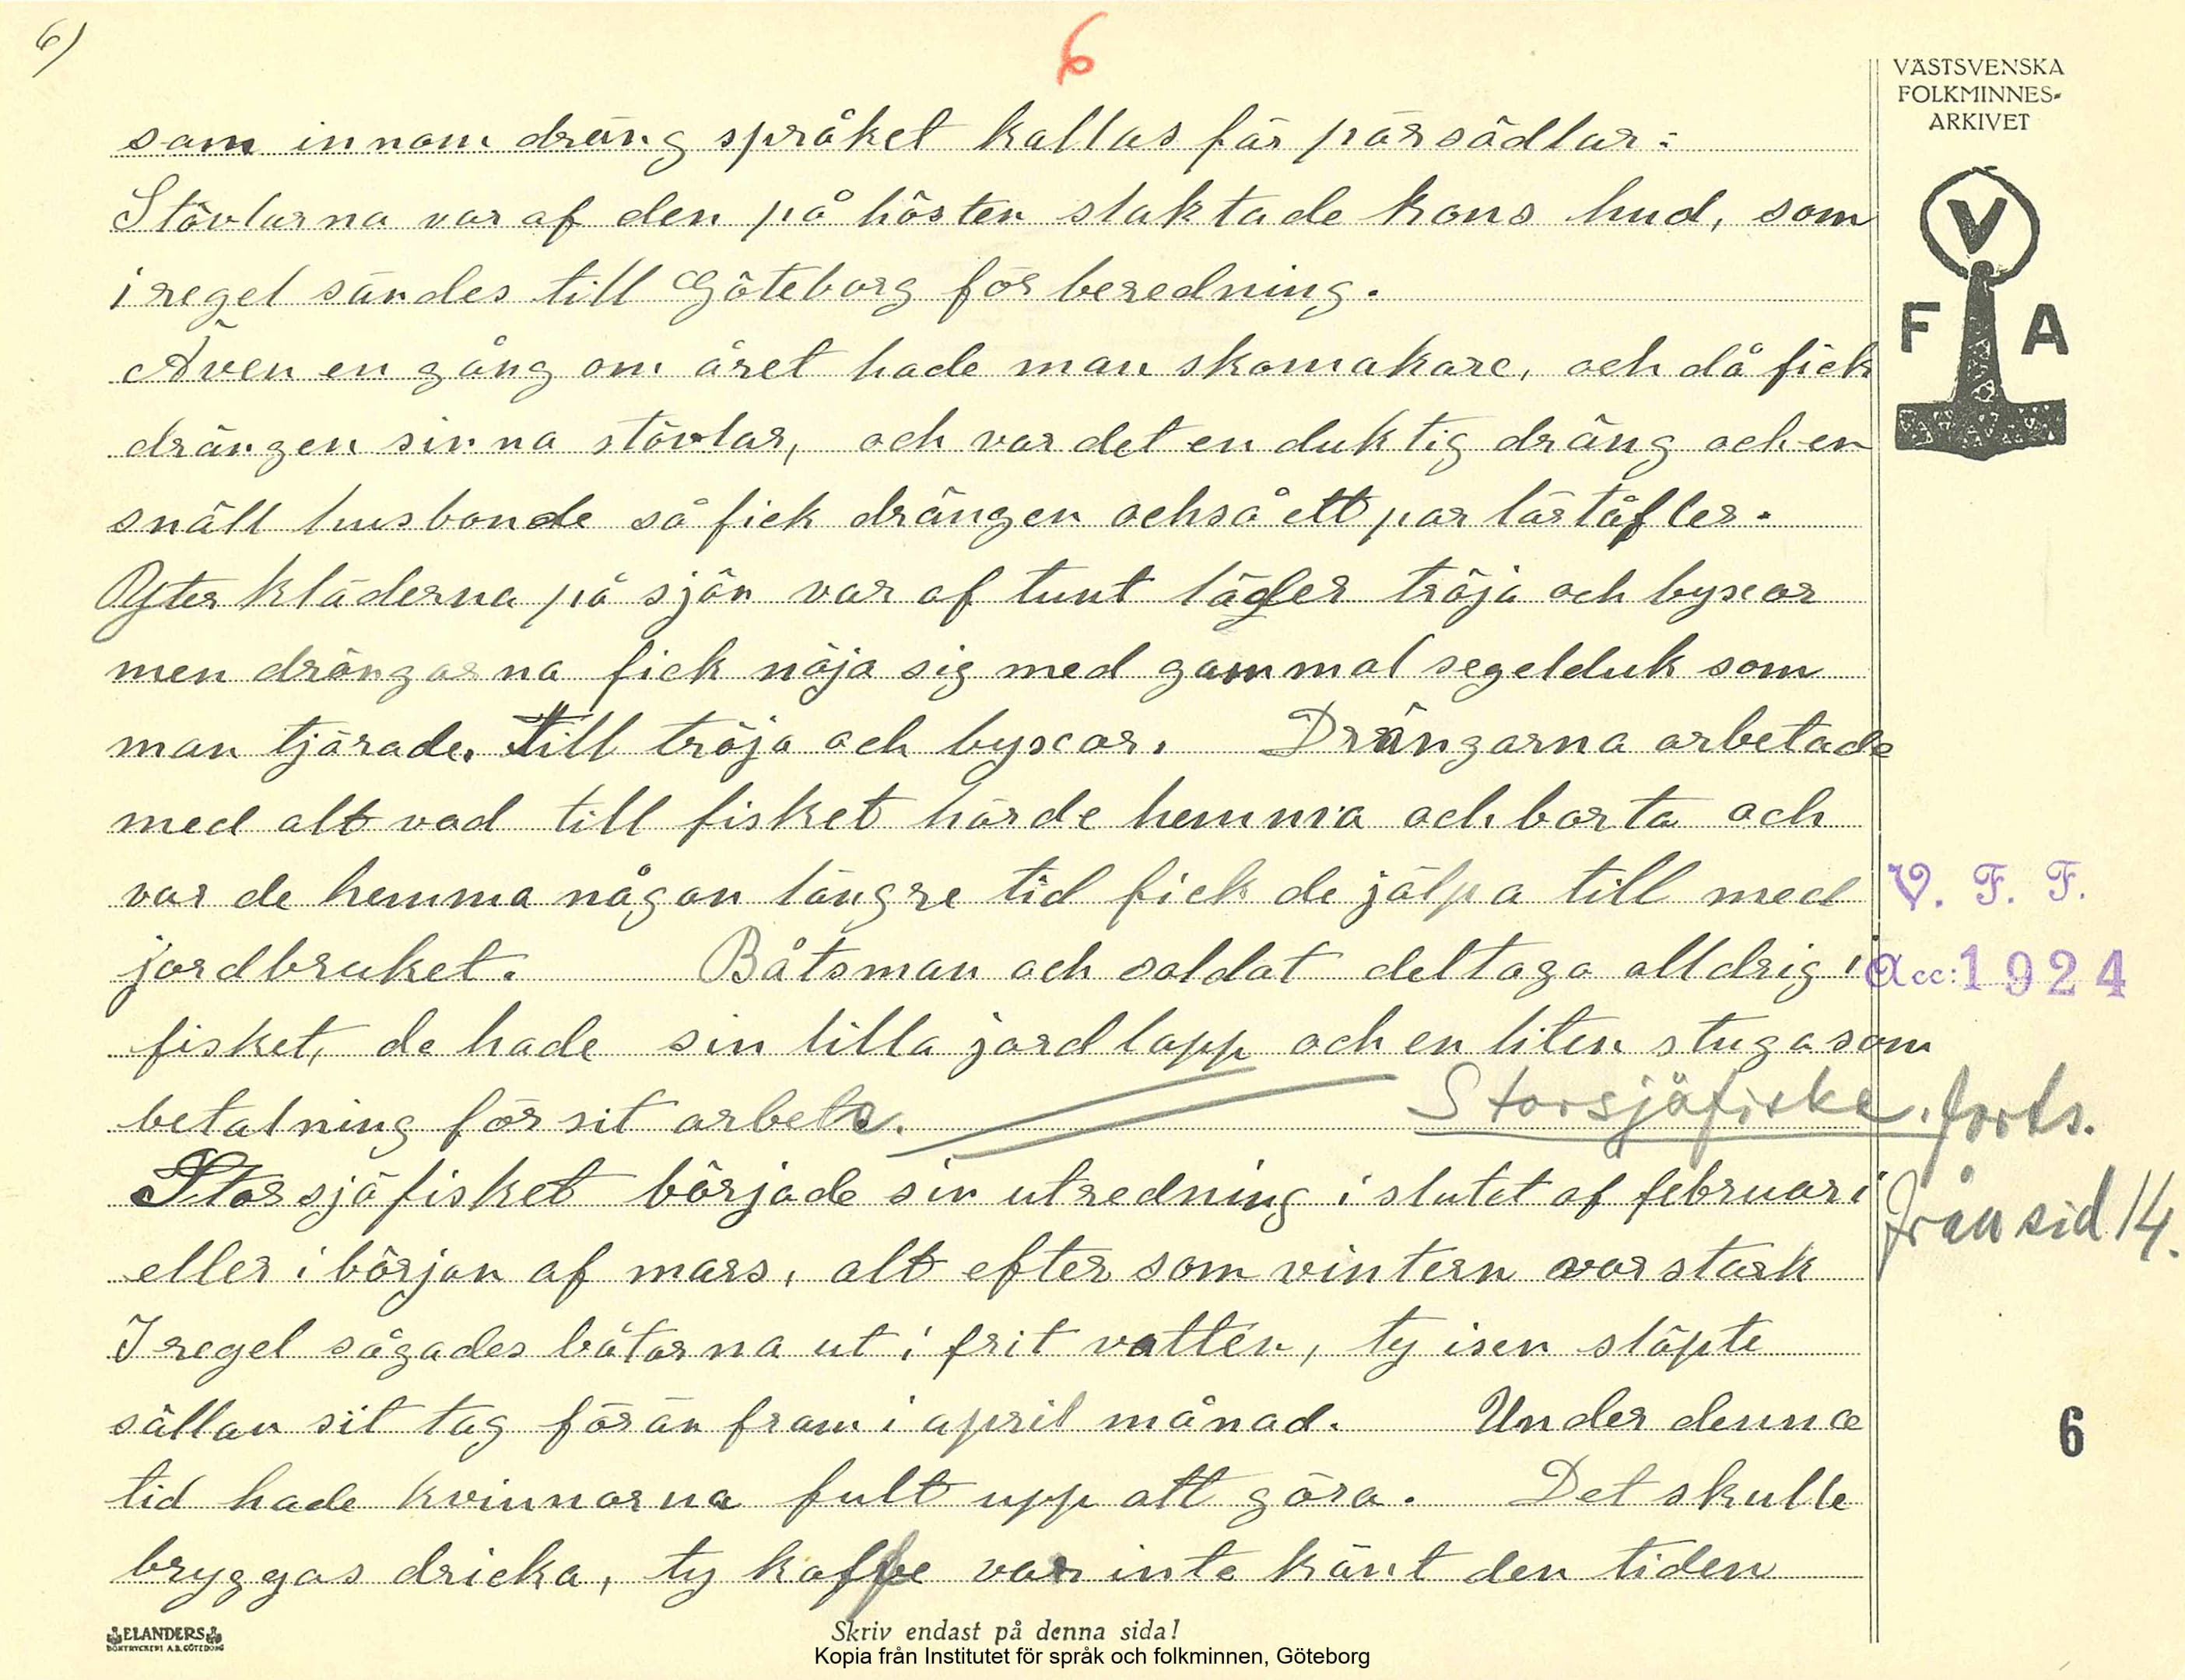 6)
6
VÄSTSVENSKA
FOLKMINNES-
ARKIVET
V
F A
som innom dräng språket kallas för pärsädlar:
Stövlarna var af den på hösten slaktade kons hud, som
i regel sändes till Göteborg för beredning.
Även en gång om året hade man skomakare, och då fick
drängen sinna stövlar, och var det en duktig dräng och en
snäll husbonde så fick drängen ochså ett par lärtåfler.
Ytterkläderna på sjön var af tunt läder tröja och byxor
men drängarna fick nöja sig med gammal segelduk som
man tjärade. till tröja och byxor. Drängarna arbetade
med alt vad till fisket hörde hemma och borta och
var de hemma någon längre tid fick de jälpa till med
jordbruket. Båtsman och soldat deltaga alldrig i
fisket, de hade sin lilla jordlapp och en liten stuga som
betalning för sit arbete.
Storsjöfiske. forts.
från sid 14.
V. F. F.
Acc: 1924
Storsjöfisket började sin utredning i slutet af februari
eller i början af mars, alt efter som vintern var stark
I regel sågades båtarna ut i frit vatten, ty isen släpte
sällan sit tag förän fram i april månad. Under denna
tid hade kvinnorna fult upp att göra. Det skulle
bryggas dricka, ty kaffe var inte känt den tiden
6
ELANDERS
BOKTRYCKERI A.B. GÖTEBORG
Skriv endast på denna sida!
Kopia från Institutet för språk och folkminnen, Göteborg